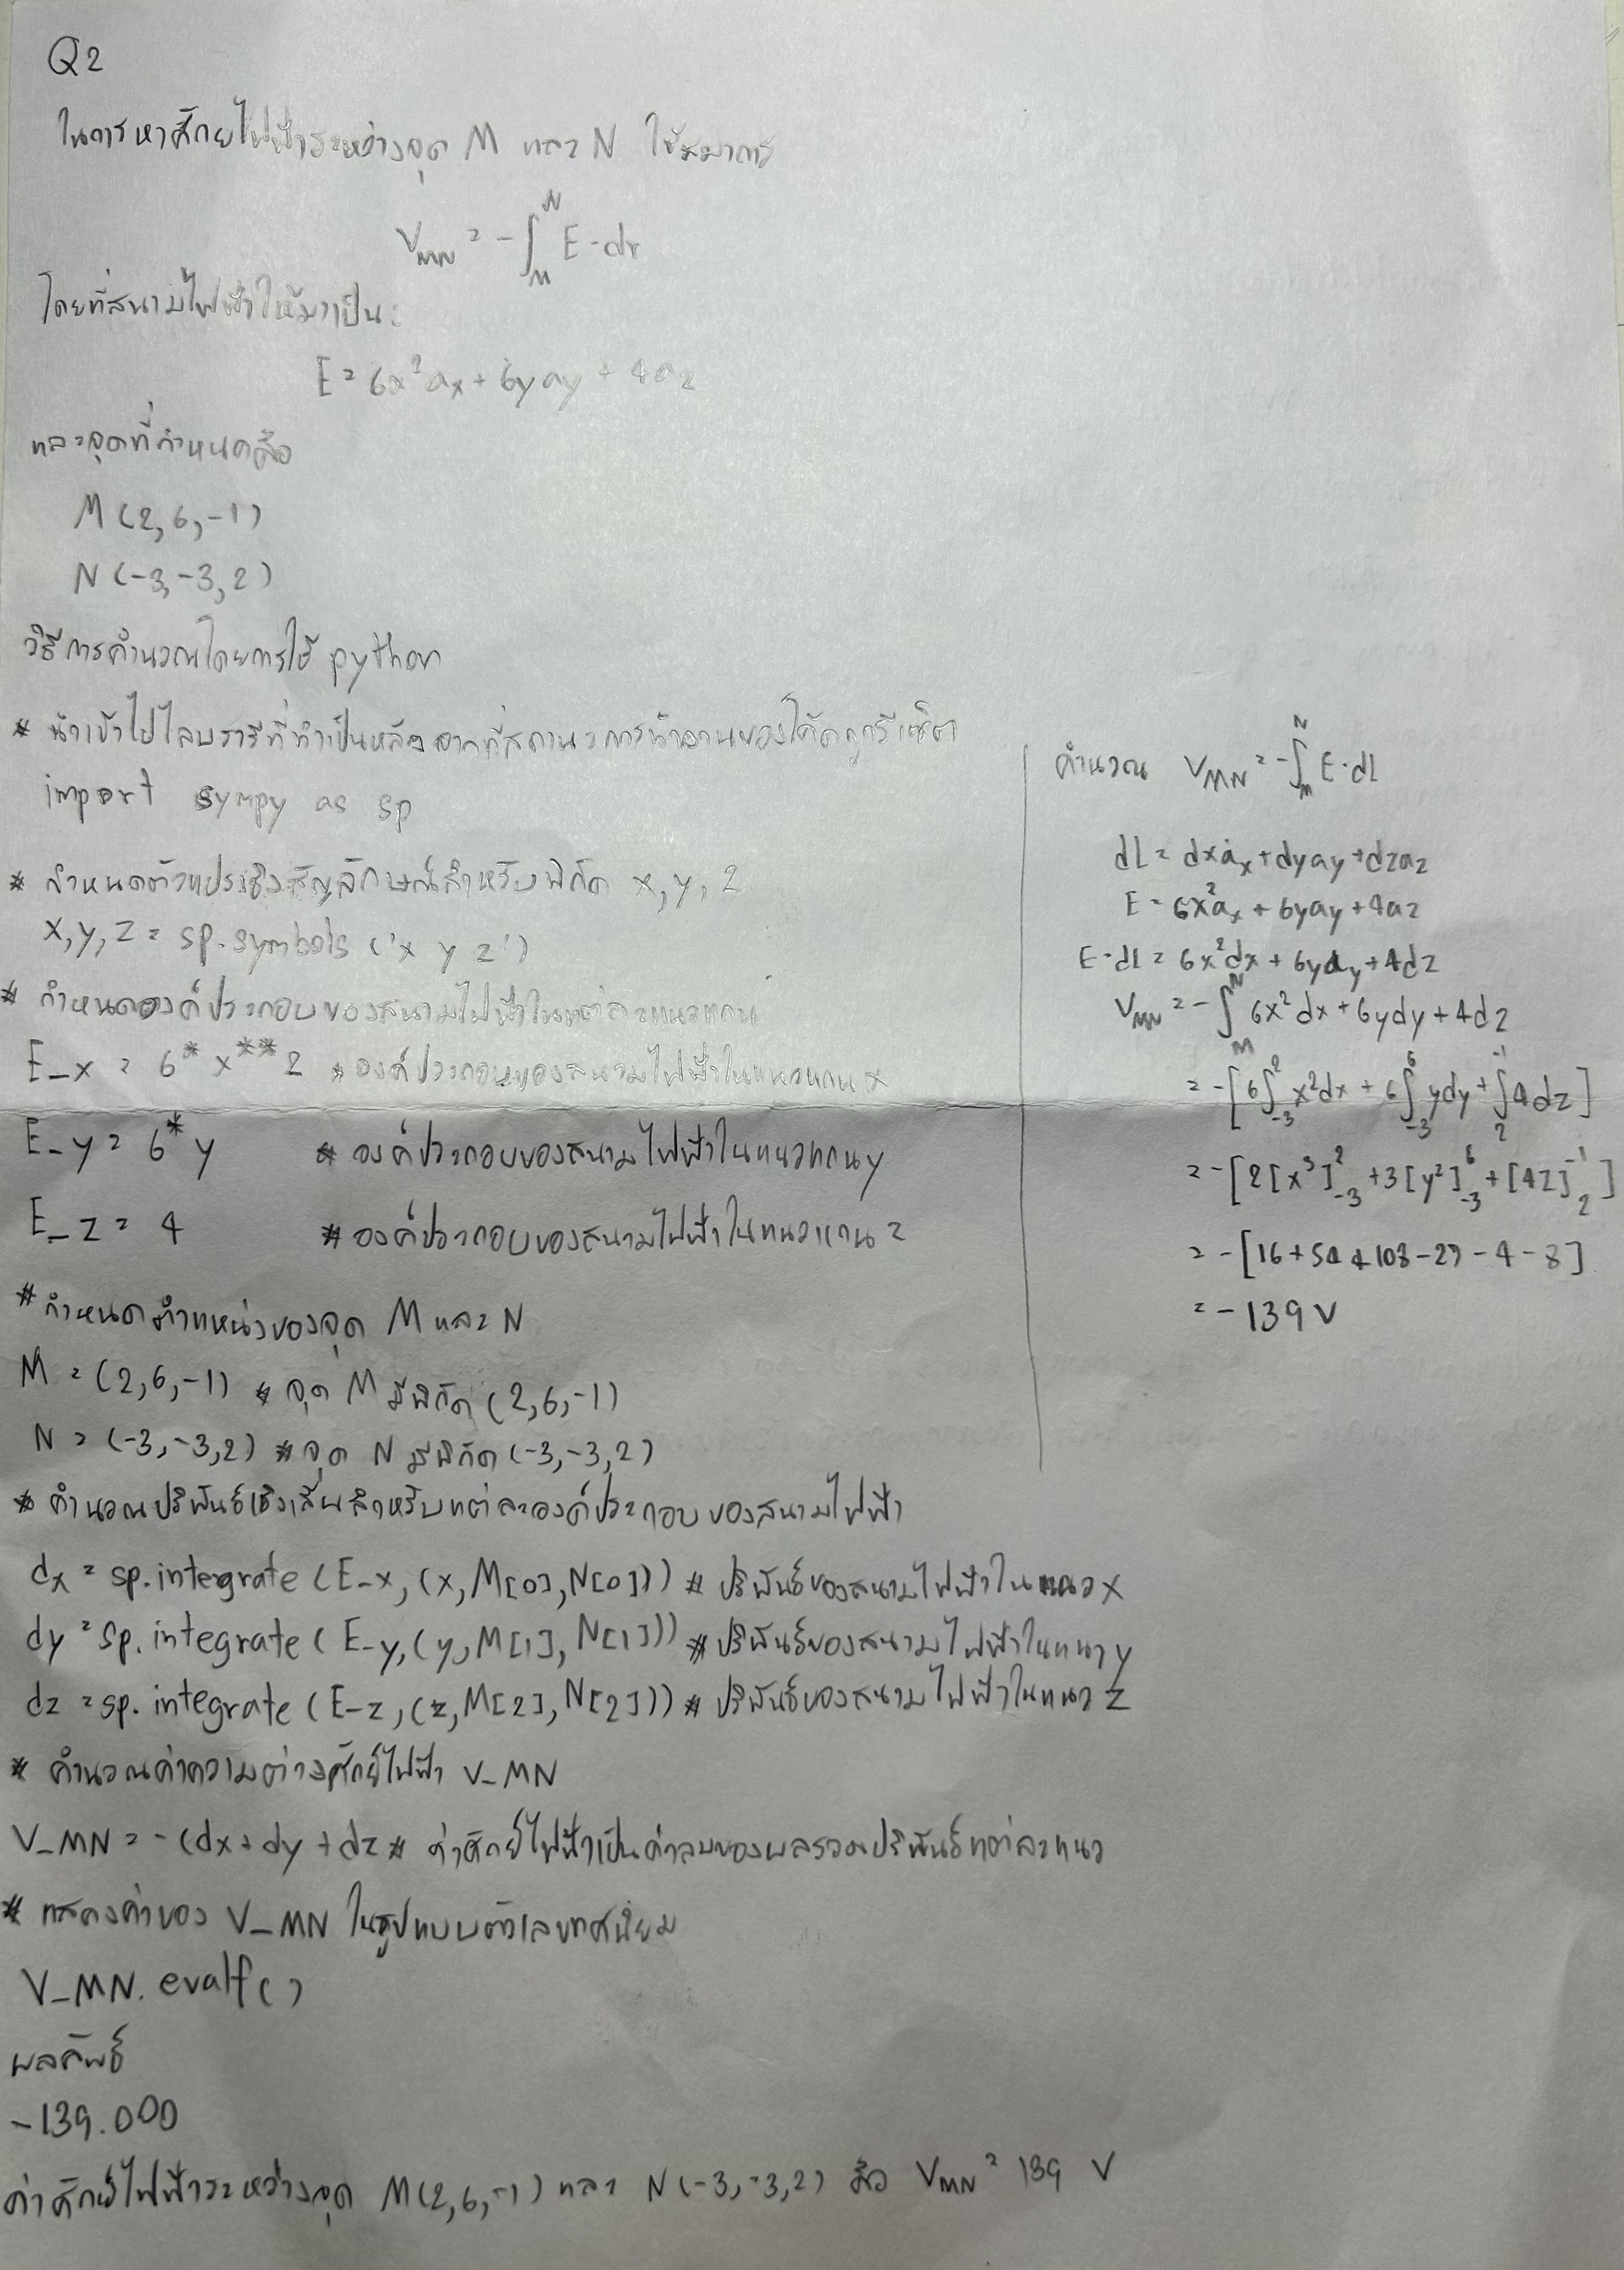 Q2
ในการหาศักย์ไฟฟ้าระหว่างจุด M และ N ใช้สมการ
V_MN = -∫_M^N E·dr
โดยที่สนามไฟฟ้าให้มาเป็น:
E = 6x²ax + 6yay + 4az
และจุดที่กำหนดคือ
M(2,6,-1)
N(-3,-3,2)
วิธีการคำนวณโดยการใช้ python
* นำเข้าไปไลบรารีที่ทำเป็นหลังจากที่สถานะการทำงานของโค้ดถูกรีเซ็ต
import sympy as sp
* กำหนดตัวแปรเชิงสัญลักษณ์สำหรับพิกัด x, y, z
x, y, z = sp.symbols ('x y z')
* กำหนดองค์ประกอบของสนามไฟฟ้าในแต่ละแนวแกน
E_x = 6*x**2 * องค์ประกอบของสนามไฟฟ้าในแนวแกน x
E_y = 6*y # องค์ประกอบของสนามไฟฟ้าในแนวแกน y
E_z = 4 # องค์ประกอบของสนามไฟฟ้าในแนวแกน z
# กำหนดตำแหน่งของจุด M และ N
M = (2,6,-1) # จุด M มีพิกัด (2,6,-1)
N = (-3,-3,2) # จุด N มีพิกัด (-3,-3,2)
# คำนวณปริพันธ์เชิงเส้นสำหรับแต่ละองค์ประกอบของสนามไฟฟ้า
dx = sp.intergrate (E_x, (x, M[0], N[0])) # ปริพันธ์ของสนามไฟฟ้าในแนว x
dy = sp.integrate (E_y, (y, M[1], N[1])) # ปริพันธ์ของสนามไฟฟ้าในแนว y
dz = sp.integrate (E_z, (z, M[2], N[2])) # ปริพันธ์ของสนามไฟฟ้าในแนว z
# คำนวณค่าความต่างศักย์ไฟฟ้า V_MN
V_MN = -(dx + dy + dz # ค่าศักย์ไฟฟ้าเป็นค่าลบของผลรวมปริพันธ์แต่ละแนว
# แสดงค่าของ V_MN ในรูปแบบตัวเลขทศนิยม
V_MN.evalf()
ผลลัพธ์
-139.000
ค่าศักย์ไฟฟ้าระหว่างจุด M(2,6,-1) และ N(-3,-3,2) คือ V_MN = 139 V
คำนวณ V_MN = -∫_M^N E·dl
dL = dxax + dyay + dzaz
E = 6x²ax + 6yay + 4az
E·dl = 6x²dx + 6ydy + 4dz
V_MN = -∫_M^N 6x²dx + 6ydy + 4dz
= -[6∫_-3^2 x²dx + 6∫_-3^6 ydy + ∫_2^-1 4dz]
= -[2[x³]_-3^2 + 3[y²]_-3^6 + [4z]_2^-1]
= -[16 + 54 + 108 - 27 - 4 - 8]
= -139 V